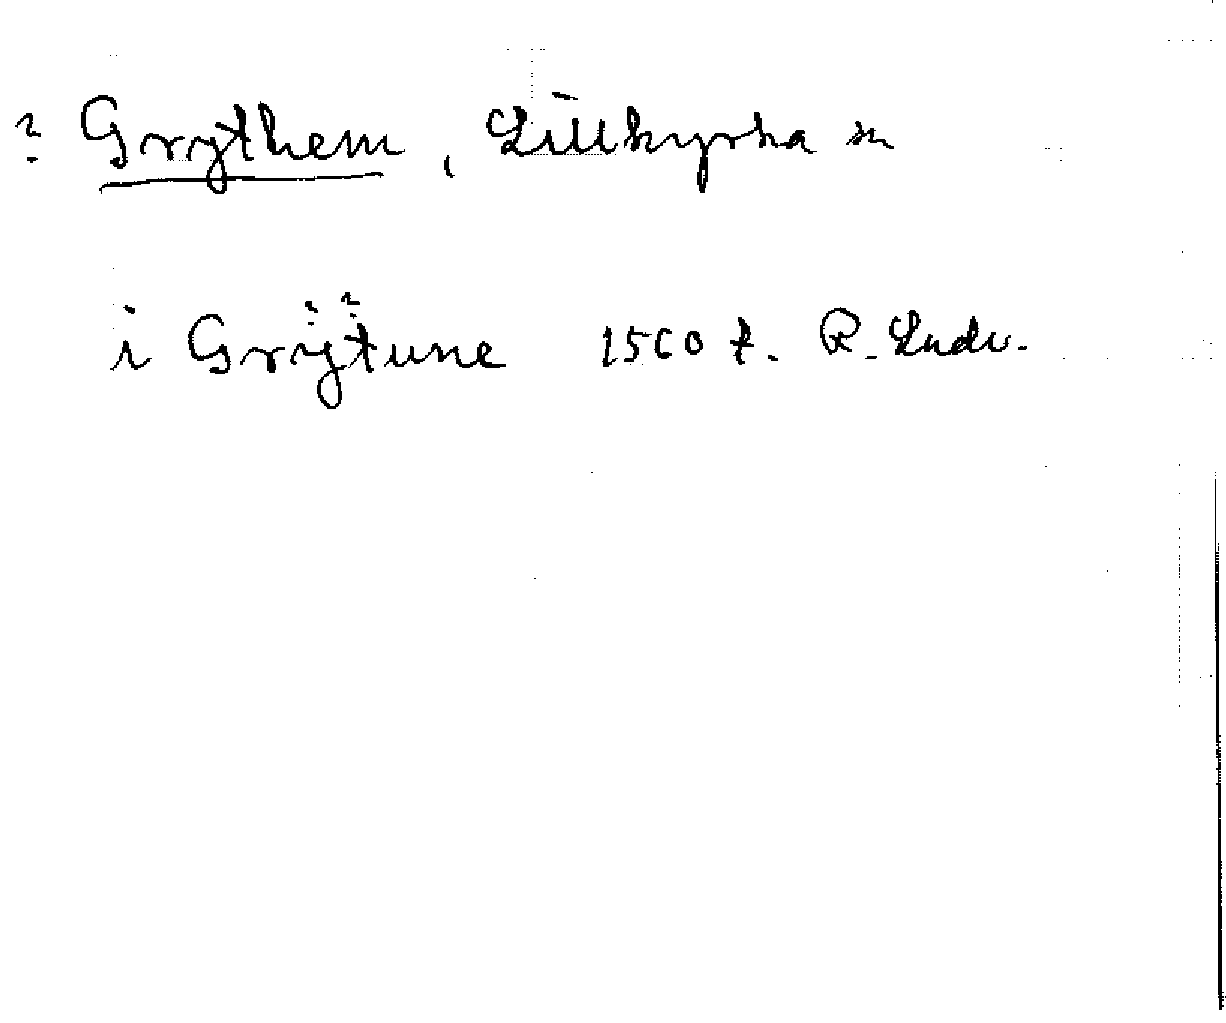 ? Grythem, Lillkyrka sn
i Grÿtune 1560 t. R. Ludv.